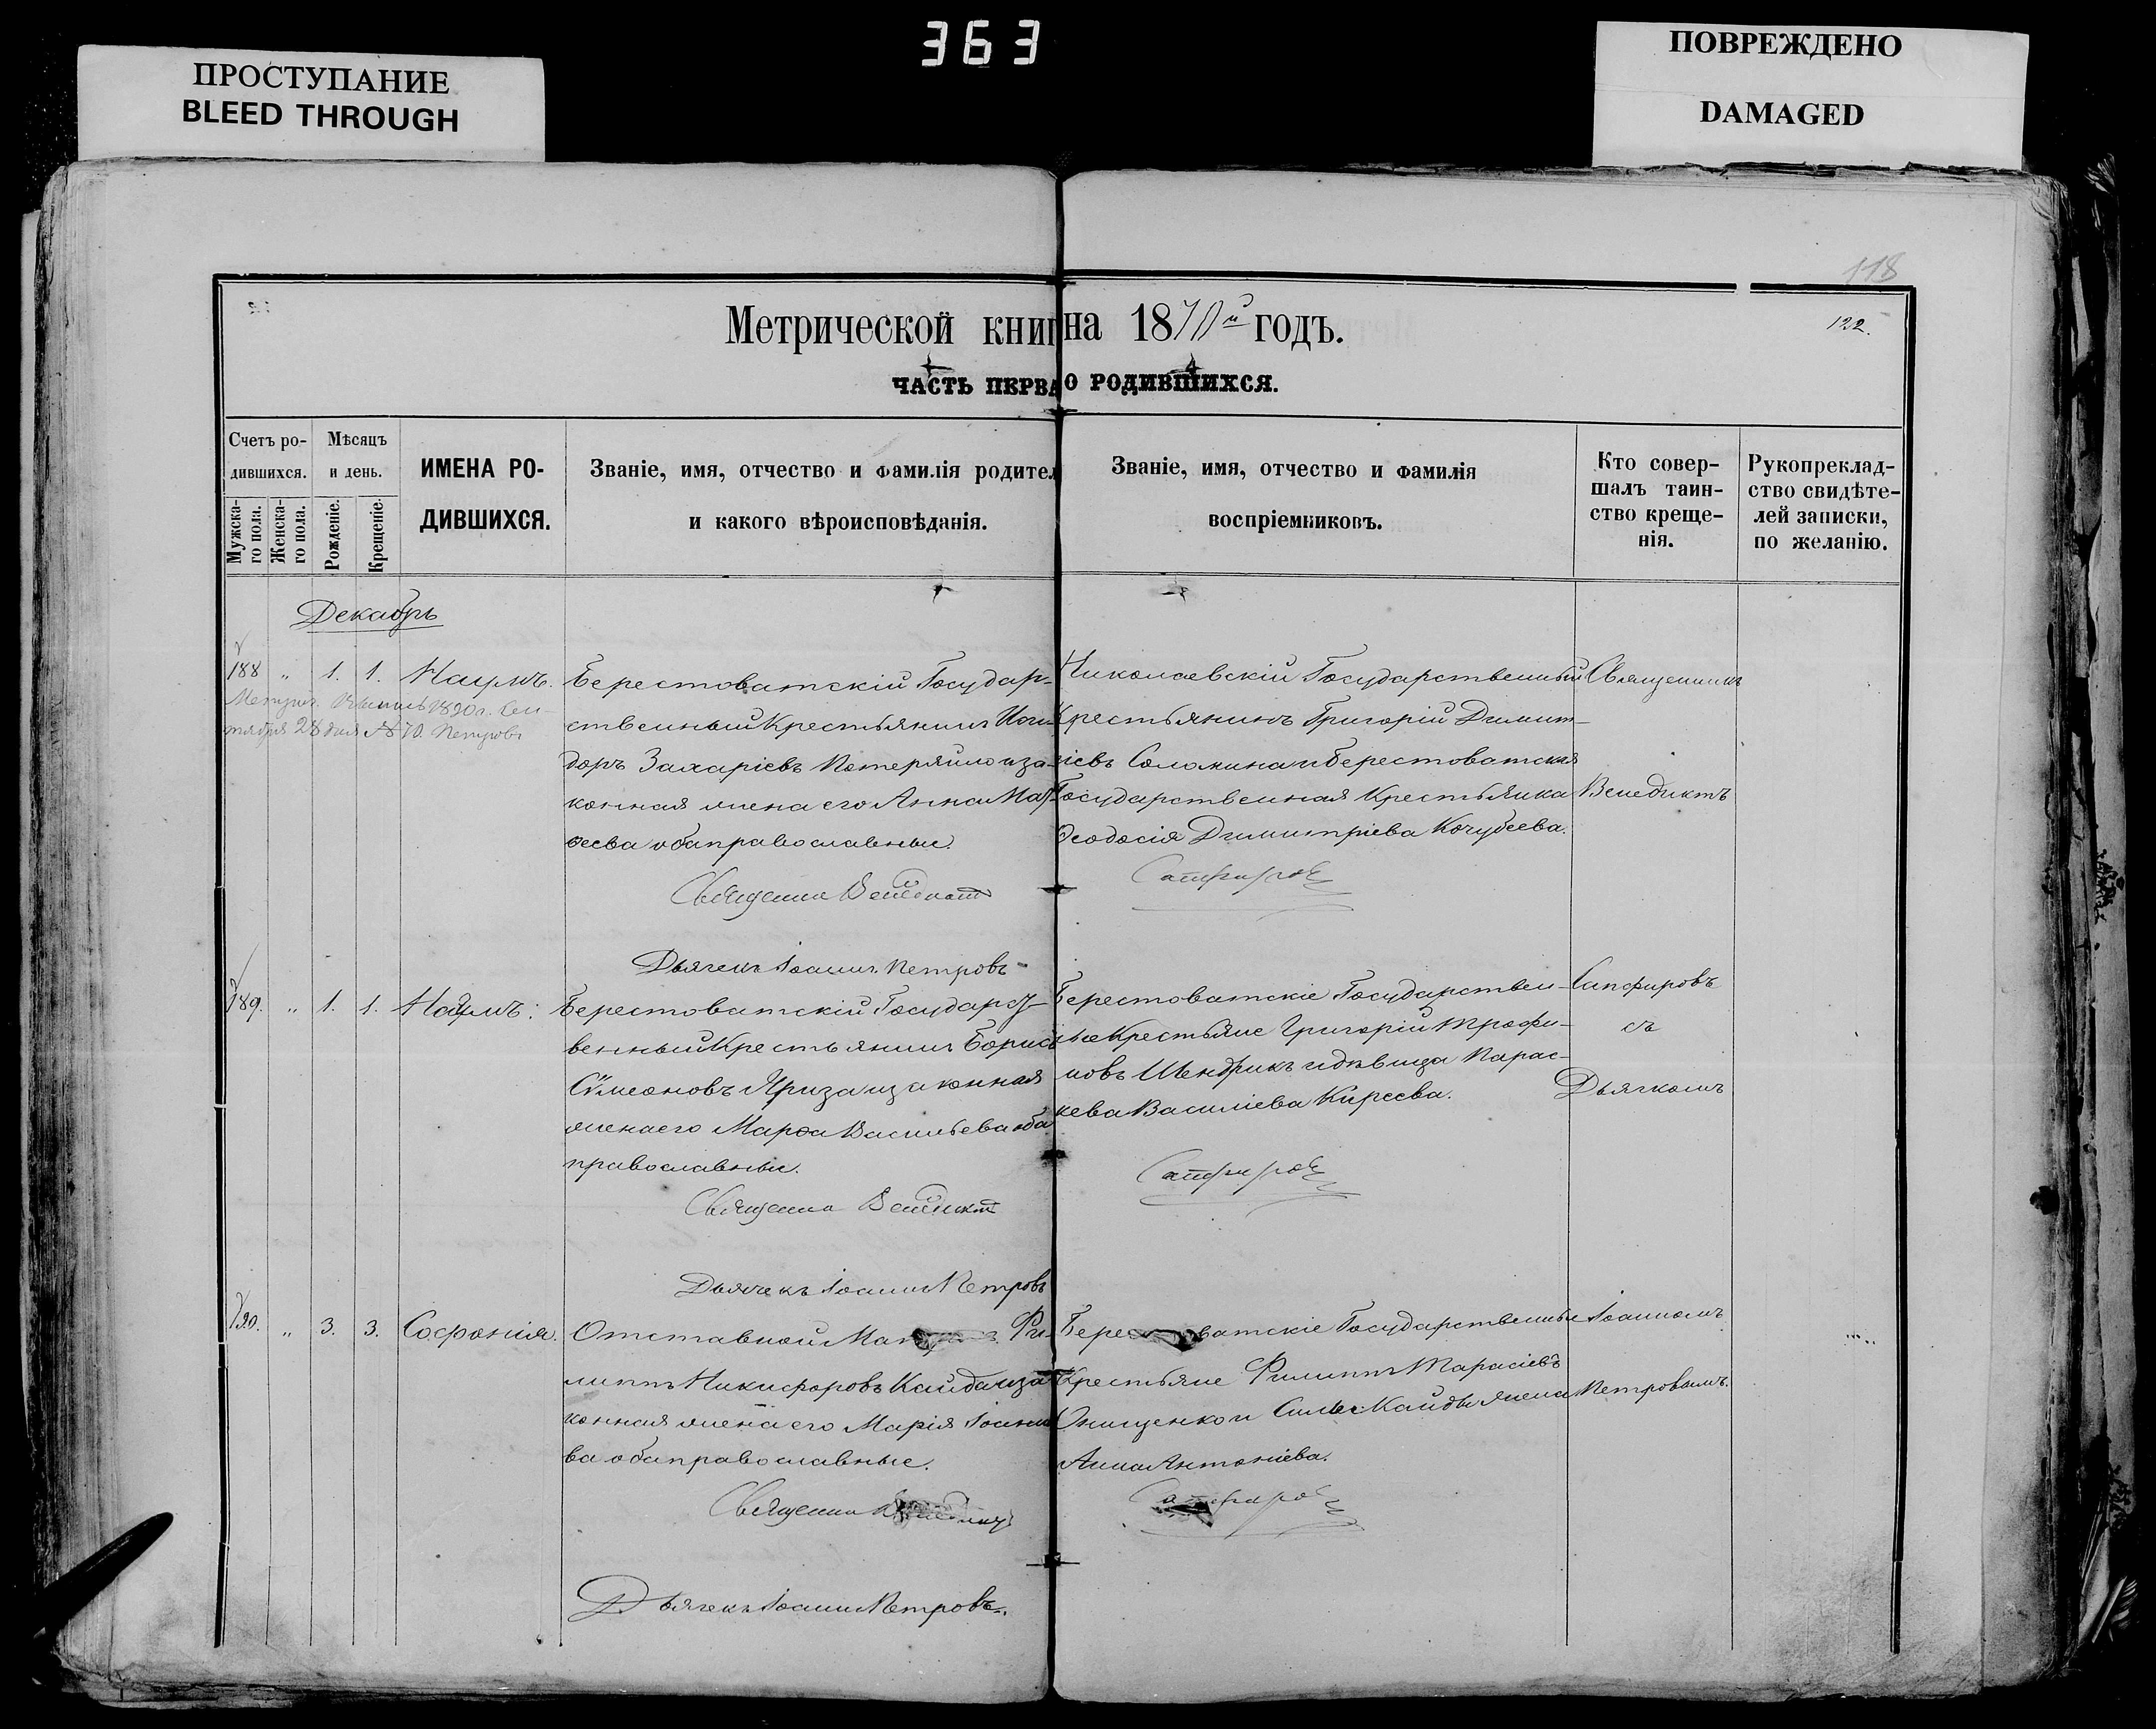 363
ПРОСТУПАНИЕ
BLEED THROUGH
ПОВРЕЖДЕНО
DAMAGED
118
122.
Метрической книг на 1870й годъ.
ЧАСТЬ ПЕРВА О РОДИВШИХСЯ.
Счетъ ро-
дившихся.
Мужска-
го пола.
Женска-
го пола.
Мѣсяцъ
и день.
Рожденіе.
Крещеніе.
ИМЕНА РО-
ДИВШИХСЯ.
Званіе, имя, отчество и фамилія родител
и какого вѣроисповѣданія.
Званіе, имя, отчество и фамилія
воспріемниковъ.
Кто совер-
шалъ таин-
ство креще-
нія.
Рукоприклад-
ство свидѣте-
лей записки,
по желанію.
Декабрь
188 " 1. 1. Наумъ.
28 дня №70. Петровъ
Берестоватскій Государ-
ственный Крестьянинъ Иси-
доръ Захаріевъ Потеряйло и за-
конная жена его Анна Мат-
ѳеева оба православные.
Николаевскій Государственный
Крестьянинъ Григорій Димит-
ріевъ Солонина и Берестоватская
Государственная Крестьянка
Ѳеодосія Димитріева Кочубеева.
Священникъ
Венедиктъ
Священни Венедикт
Сапфиров
Дьячекъ Іоаннъ Петровъ
189. " 1. 1. Наумъ.
Берестоватскій Государст-
венный Крестьянинъ Борисъ
Сѵмеоновъ Яриза и законная
жена его Марѳа Васильева оба
православные.
Берестоватскіе Государствен-
ные Крестьяне Григорій Трофи-
мовъ Шендрикъ и дѣвица Парас-
кева Василіева Киреева.
Сапфировъ
съ
Дьячкомъ
Священни Венедикт
Сапфиров
Дьячекъ Іоаннъ Петровъ
190. " 3. 3. Софонія.
Отставной Фи-
липпъ Никифоровъ Кайда и за-
конная жена его Марія Іоанно
ва оба православные.
Берестоватскіе Государственные
Крестьяне Филиппъ Тарасіевъ
Онищенко и Кайды жена
Анна Антоніева.
Іоанномъ
Петровымъ.
Священни
Сапфиров
Дьячекъ Іоаннъ Петровъ.